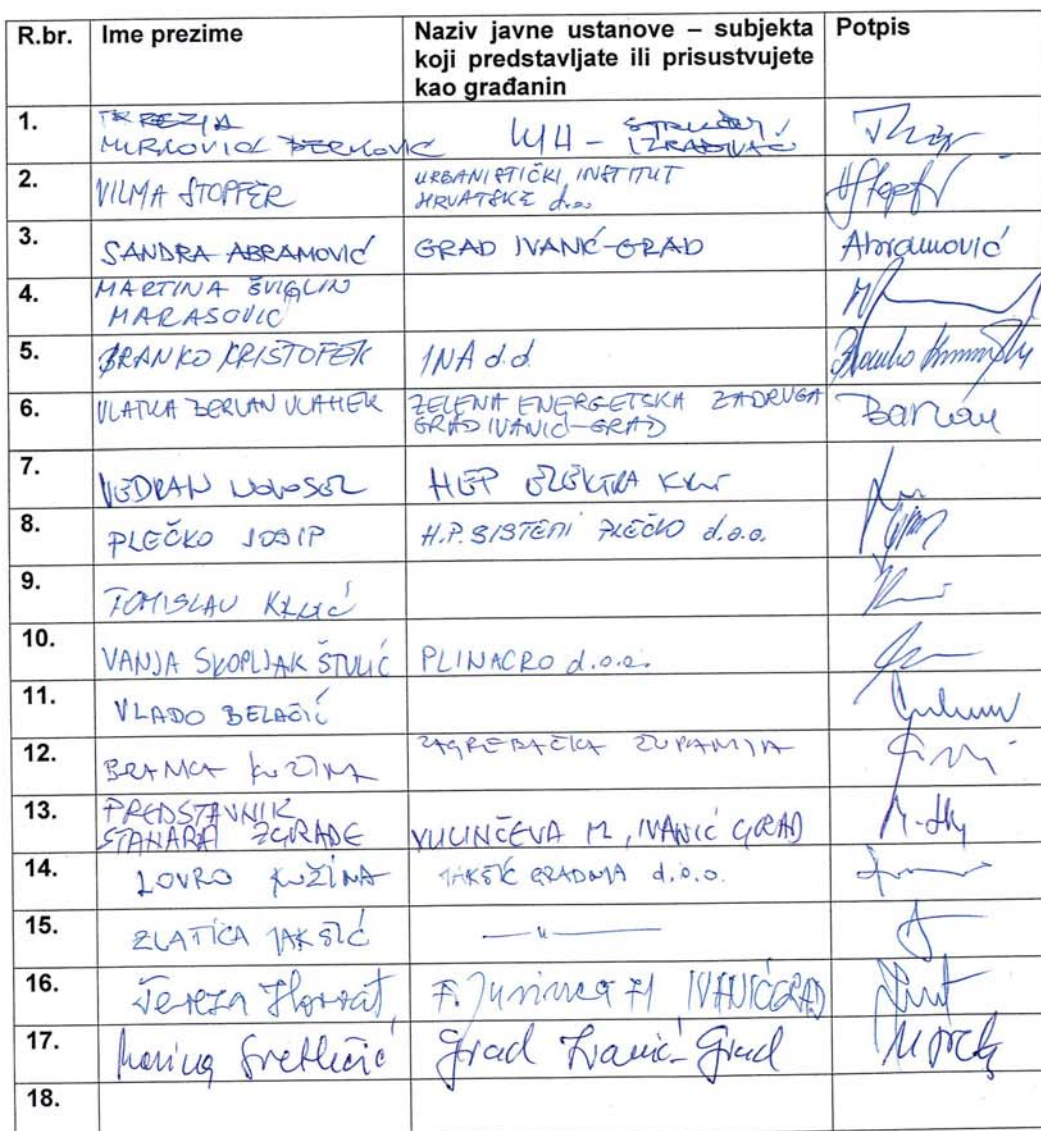 R.br. Ime prezime Naziv javne ustanove – subjekta Potpis
koji predstavljate ili prisustvujete
kao građanin
1. TEREZIJA
MURKOVIĆ BERKOVIĆ UIH - STRUČNI
IZRAĐIVAČ
2. VILMA STOPFER URBANISTIČKI INSTITUT
HRVATSKE d.o.o. Stopf
3. SANDRA ABRAMOVIĆ GRAD IVANIĆ-GRAD Abramović
4. MARTINA ŠVIGLIN
MARASOVIĆ
5. BRANKO KRISTOFEK INA d.d. Branko
6. VLATKA BERLAN VLAHEK ZELENA ENERGETSKA ZADRUGA
GRAD IVANIĆ-GRAD
7. VEDRAN NOVOSEL HEP ELEKTRA
8. PLEČKO JOSIP H.P. SISTEMI PLEČKO d.o.o.
9. TOMISLAV
10. VANJA SKOPLJAK ŠTULIĆ PLINACRO d.o.o.
11. VLADO BELAČIĆ
12. BRANKA KUŽINA ZAGREBAČKA ŽUPANIJA
13. PREDSTAVNIK
STANARA ZGRADE VULINČEVA 12, IVANIĆ GRAD
14. LOVRO KUŽINA JAKŠIĆ GRADNJA d.o.o.
15. ZLATICA JAKŠIĆ —"—
16. Tereza Horvat, F. IVANIĆGRAD
17. Marina Svetličić Grad Ivanić-Grad
18.